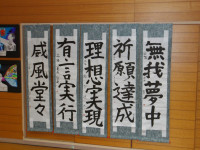 無我夢中
祈願達成
理想実現
有言実行
威風堂々